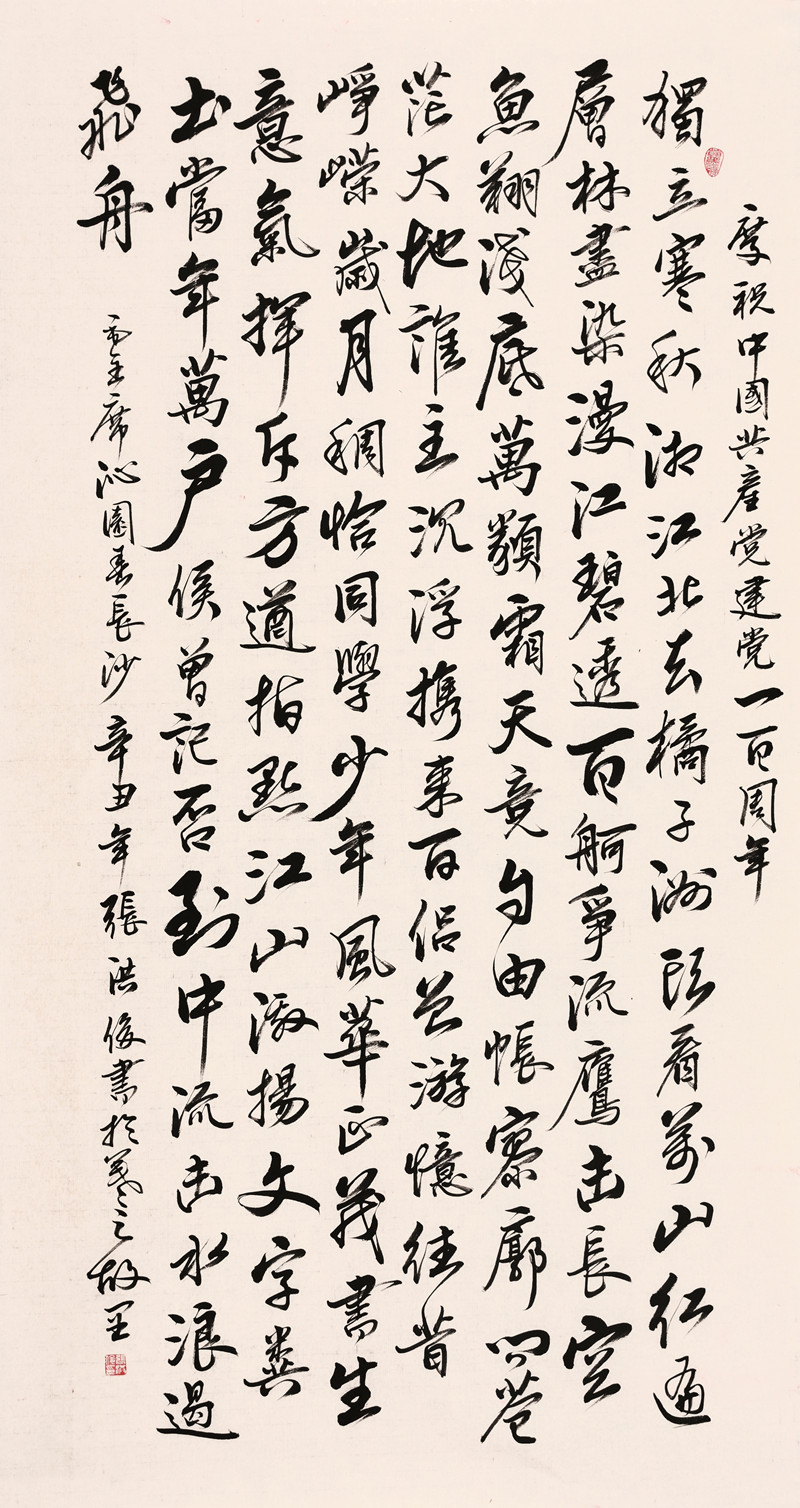 慶祝中國共產党建党一百周年
獨立寒秋湘江北去橘子洲頭看萬山紅遍
層林盡染漫江碧透百舸爭流鷹击長空
魚翔淺底萬類霜天竟自由悵寥廓問苍
茫大地誰主沉浮携来百侣曾游憶往昔
崢嶸歲月稠恰同學少年風華正茂書生
意氣揮斥方遒指點江山激揚文字糞
土當年萬户侯曾記否到中流击水浪遏
飛舟
毛主席沁園春長沙辛丑年張洪俊書於羲之故里